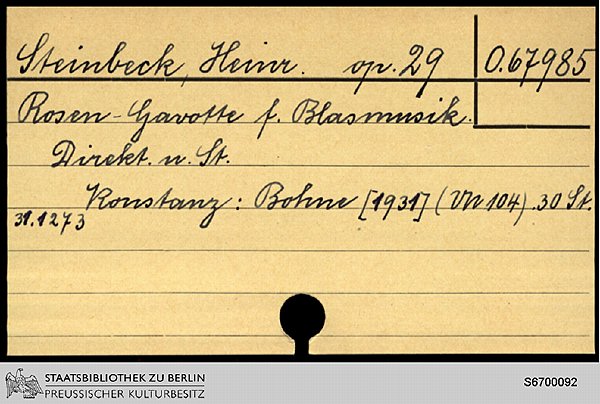 Steinbeck, Heinr. op. 29 O.67985
Rosen-Gavotte f. Blasmusik.
Direkt. u. St.
Konstanz: Bohne [1931] (VN 104). 30 St.
31.1273
STAATSBIBLIOTHEK ZU BERLIN
PREUSSISCHER KULTURBESITZ
S6700092